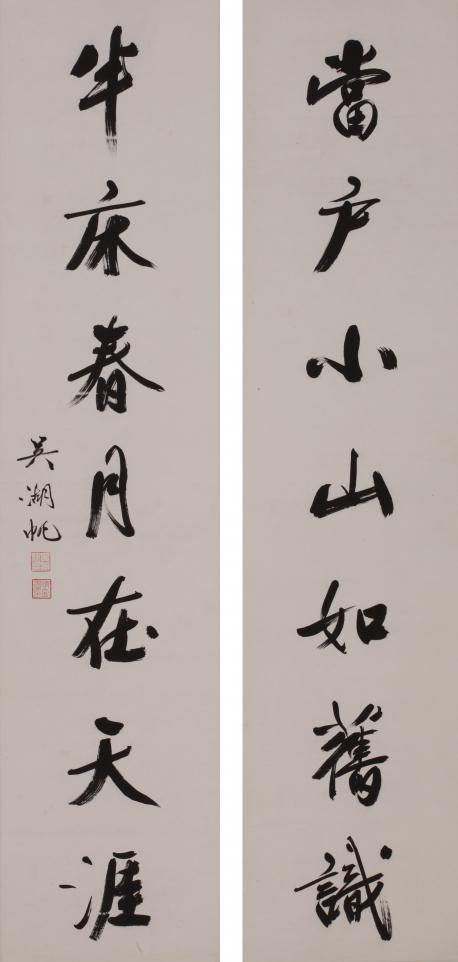 當户小山如舊識
半床春月在天涯
吳湖帆